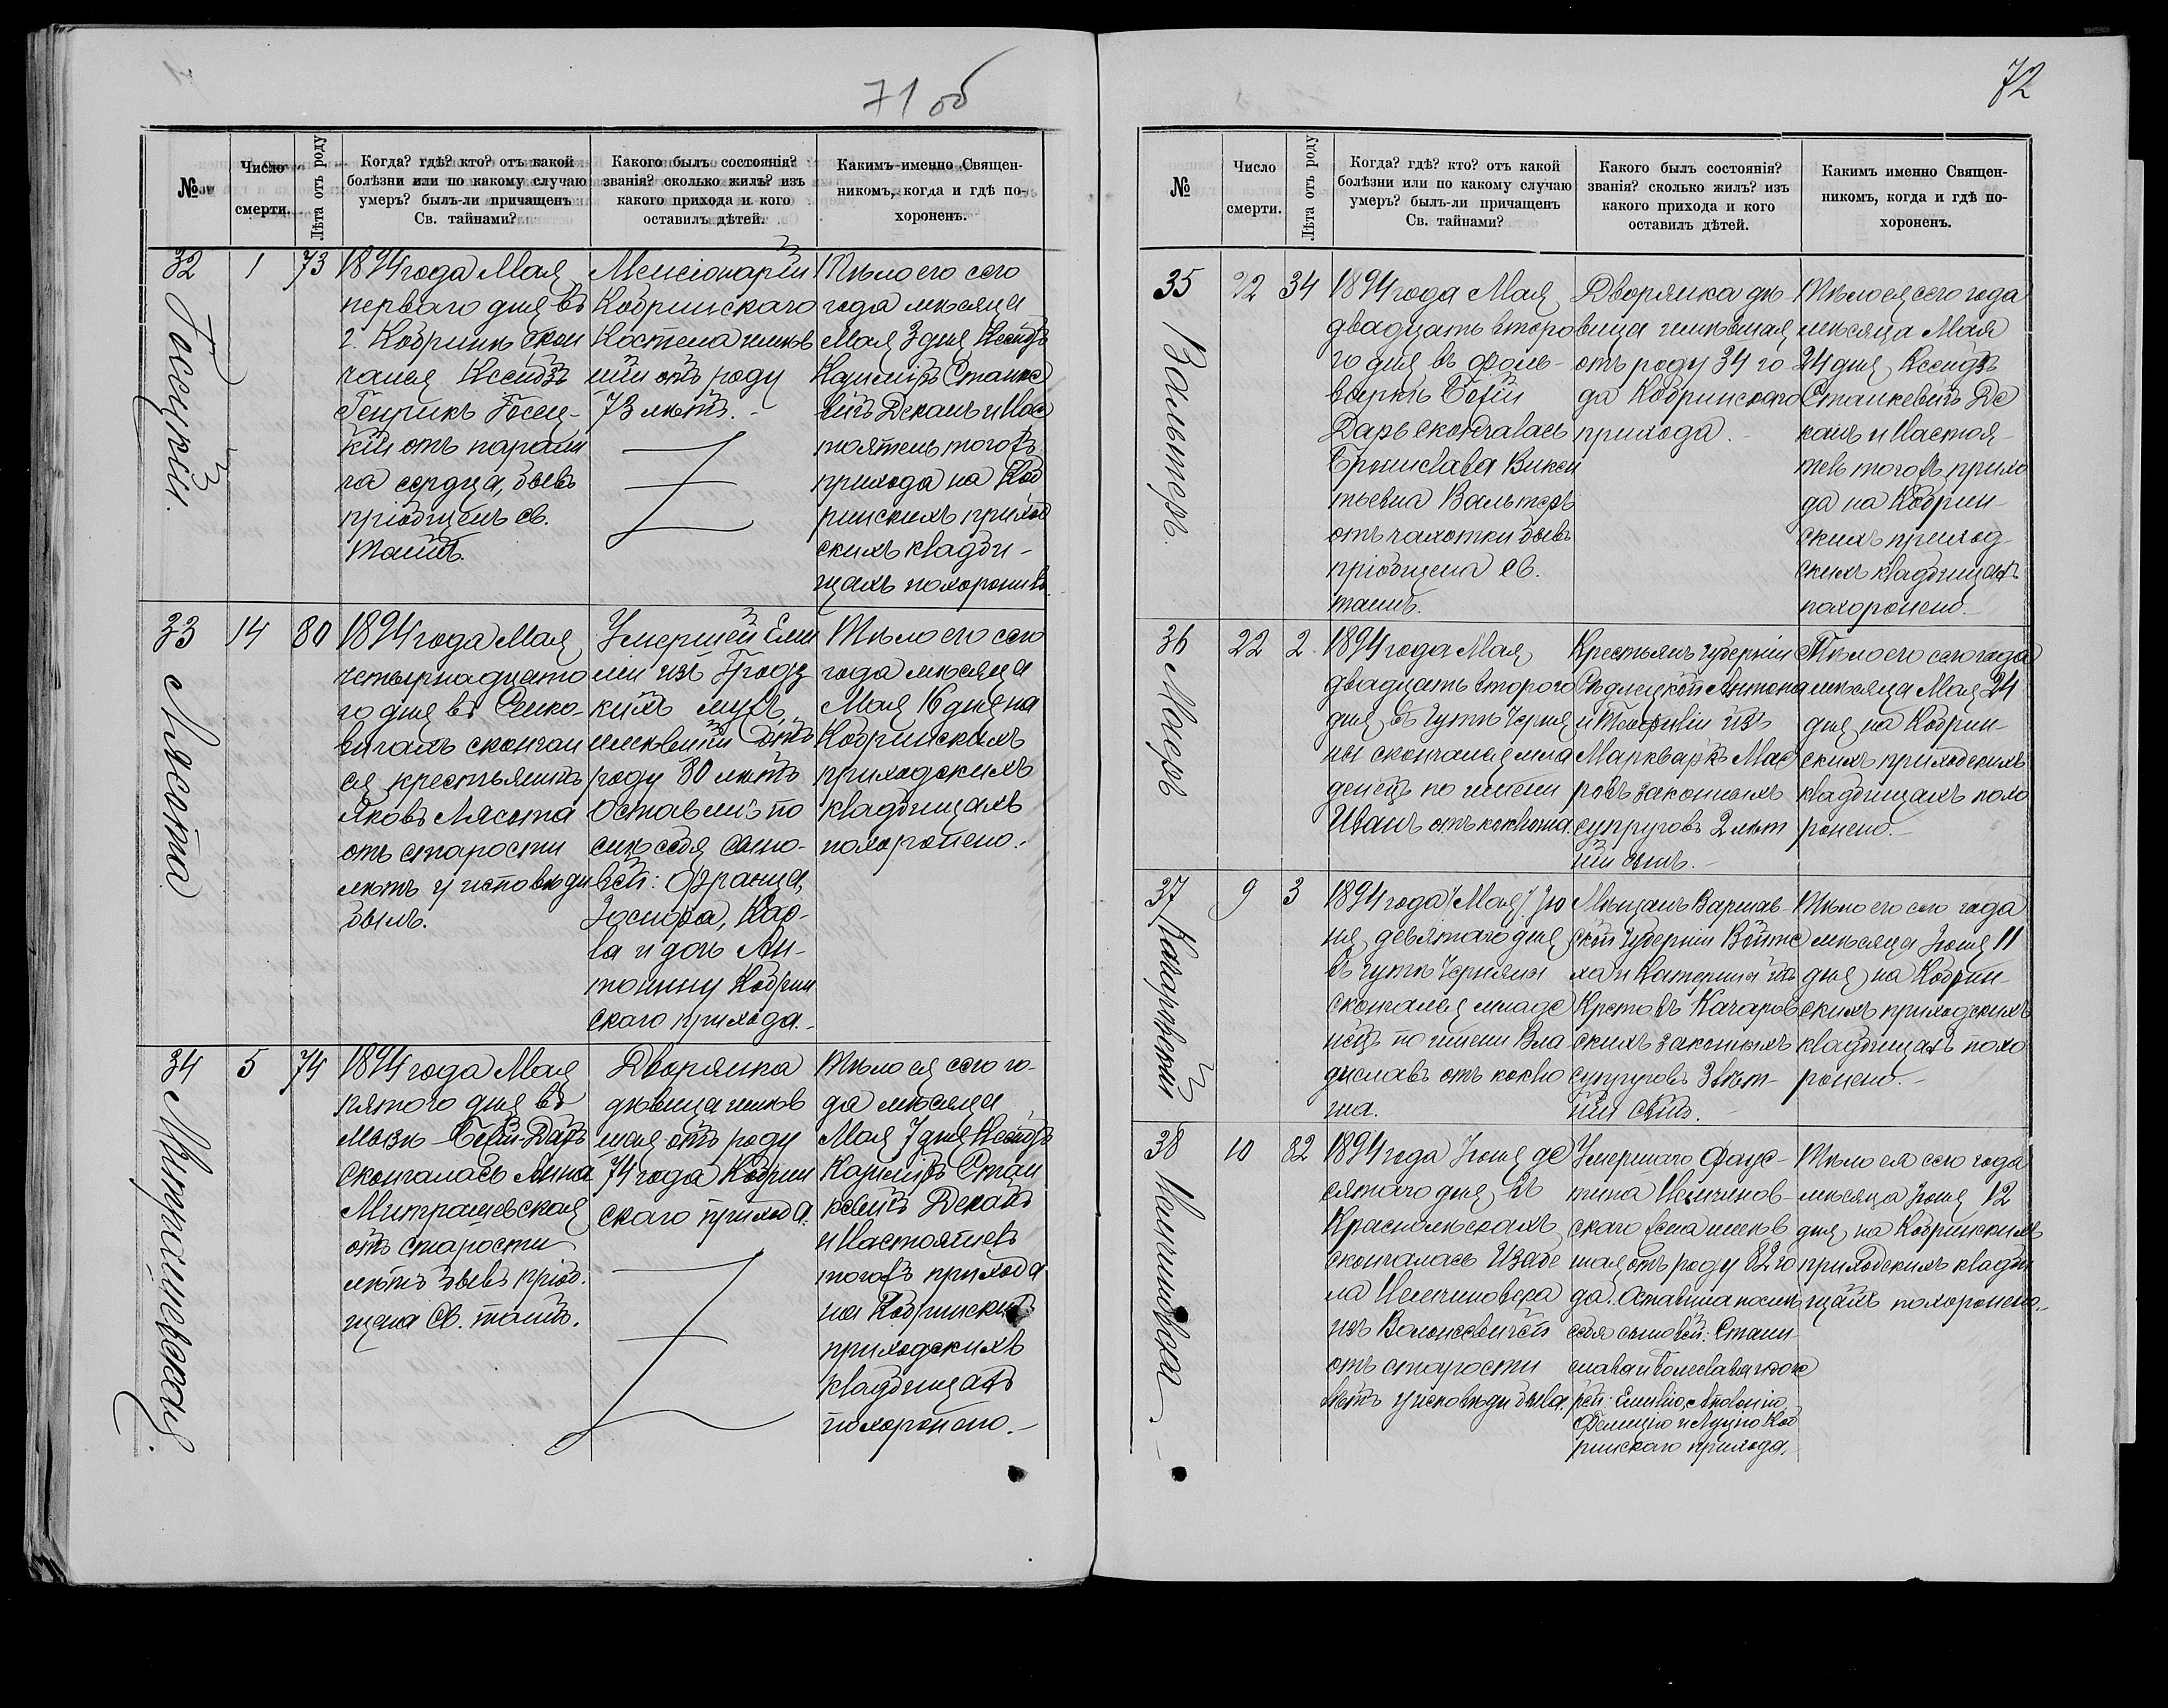 71 об
№
Число смерти.
Лѣта отъ роду
Когда? гдѣ? кто? отъ какой
болѣзни или по какому случаю
умеръ? былъ-ли причащенъ
Св. тайнами?
Какого былъ состоянія?
званія? сколько жилъ? изъ
какого прихода и кого
оставилъ дѣтей.
Какимъ именно Священ-
никомъ, когда и гдѣ по-
хороненъ.
32
Госецкій.
1
73
1894 года Мая
перваго дня въ
г. Кобринѣ скон
чался Ксендзъ
Генрикъ Госец-
кій отъ парали
ча сердца, бывъ
пріобщенъ св.
таинъ.
Кобринскаго
Костела имѣв
шій отъ роду
73 лѣтъ.-
Тѣло его сего
года мѣсяца
Мая 3 дня Ксендзъ
Казиміръ Станке
вичъ Деканъ и Нас
тоятель тогожъ
прихода на Коб
ринскихъ приход
скихъ кладби-
щахъ похоронилъ.
33
Лясота
14
80
1894 года Мая
четырнадцато
го дня въ
скончал
ся крестьянинъ
Яковъ Лясота
отъ старости
лѣтъ у исповѣди
былъ.
Умершей Еми
ліи изъ
мужъ,
имѣвшій отъ
роду 80 лѣтъ
Оставилъ по
слѣ себя сыно-
вей: Франца,
Іосифа, Кар-
ла и дочь Ан-
тонину Кобрин
скаго прихода.-
Тѣло его сего
года мѣсяца
Мая 16 дня на
Кобринскихъ
приходскихъ
кладбищахъ
похоронено.-
34
Митрашевская.
5
74
1894 года Мая
пятого дня въ
мызѣ Бегій-Дарь
скончалась Анна
Митрашевская
отъ старости
лѣтъ бывъ пріоб.
щена Св. таинъ.
Дворянка
дѣвица имѣв
шая отъ роду
74 года Кобрин
скаго прихода.
Тѣло ея сего го-
да мѣсяца
Мая 7 дня Ксендзъ
Казиміръ Стан
кевичъ Деканъ
и Настоятель
тогожъ прихода
на Кобринскихъ
приходскихъ
кладбищахъ
похоронено.-
72
№
Число смерти.
Лѣта отъ роду
Когда? гдѣ? кто? отъ какой
болѣзни или по какому случаю
умеръ? былъ-ли причащенъ
Св. тайнами?
Какого былъ состоянія?
званія? сколько жилъ? изъ
какого прихода и кого
оставилъ дѣтей.
Какимъ именно Священ-
никомъ, когда и гдѣ по-
хороненъ.
35
Вальтеръ
22
34
1894 года Мая
двадцать второ
го дня въ фоль-
варкѣ Бегій
Дарь скончалась
Бронислава Викен
тьевна Вальтеръ
отъ чахотки бывъ
пріобщена св.
таинъ.
Дворянка дѣ-
вица имѣвшая
отъ роду 34 го
да Кобринскаго
прихода.-
Тѣло ея сего года
мѣсяца Мая
24 дня Ксендзъ
Станкевичъ Де
канъ и Настоя-
тель тогожъ прихо
да на Кобрин-
скихъ приход-
скихъ кладбищахъ
похоронено.-
36
22
2
1894 года Мая
двадцать второго
дня въ гутѣ Черня
ны скончался мла
денецъ по имени
Иванъ отъ коклюша.
Крестьянъ губерніи
Сѣдлецкой Антона
и Теофиліи изъ
законныхъ
супруговъ 2 лѣт
ній сынъ.-
Тѣло его сего года
мѣсяца Мая 24
дня на Кобрин-
скихъ приходскихъ
кладбищахъ похо
ронено.-
37
Качаровскій
9
3
1894 года /Мая/ Ію
ня девятаго дня
въ гутѣ Черняны
скончался младе
нецъ по имени Вла
диславъ отъ коклю
ша.
Мѣщанъ Варшав-
ской губерніи Войте
ха и Катерины изъ
Крстовъ Качаров
скихъ законныхъ
супруговъ 3 лѣт-
ній сынъ.
Тѣло его сего года
мѣсяца Іюня 11
дня на Кобрин-
скихъ приходскихъ
кладбищахъ похо
ронено.-
38
10
82
1894 года Іюня де
сятаго дня въ
скончалась Изабе
ла
отъ старости
лѣтъ у исповѣди была.
Умершаго Фаус-
тина
скаго жена имѣв
шая отъ роду 82 го
да. Оставила послѣ
себя сыновей: Стани-
слава и Болеслава и доче
рей: Емилію, Аполонію,
Фелицію и Луцію Коб
ринскаго прихода.-
Тѣло ея сего года
мѣсяца Іюня 12
дня на Кобринскихъ
приходскихъ кладби
щахъ похоронено.-